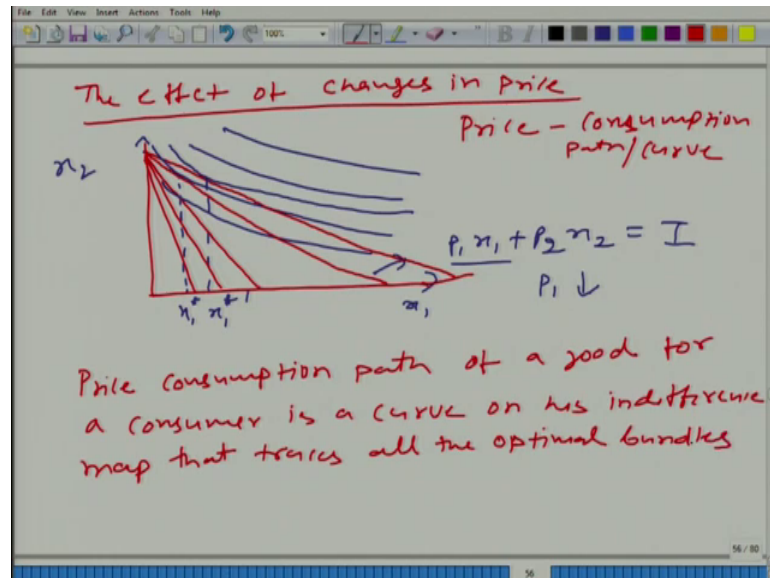 File Edit View Insert Actions Tools Help
100%
The effect of changes in price
Price - consumption
path/curve
x2
P1 x1 + P2 x2 = I
P1 ↓
x1* x1*' x1
Price consumption path of a good for
a consumer is a curve on his indifference
map that traces all the optimal bundles
56 / 80
56